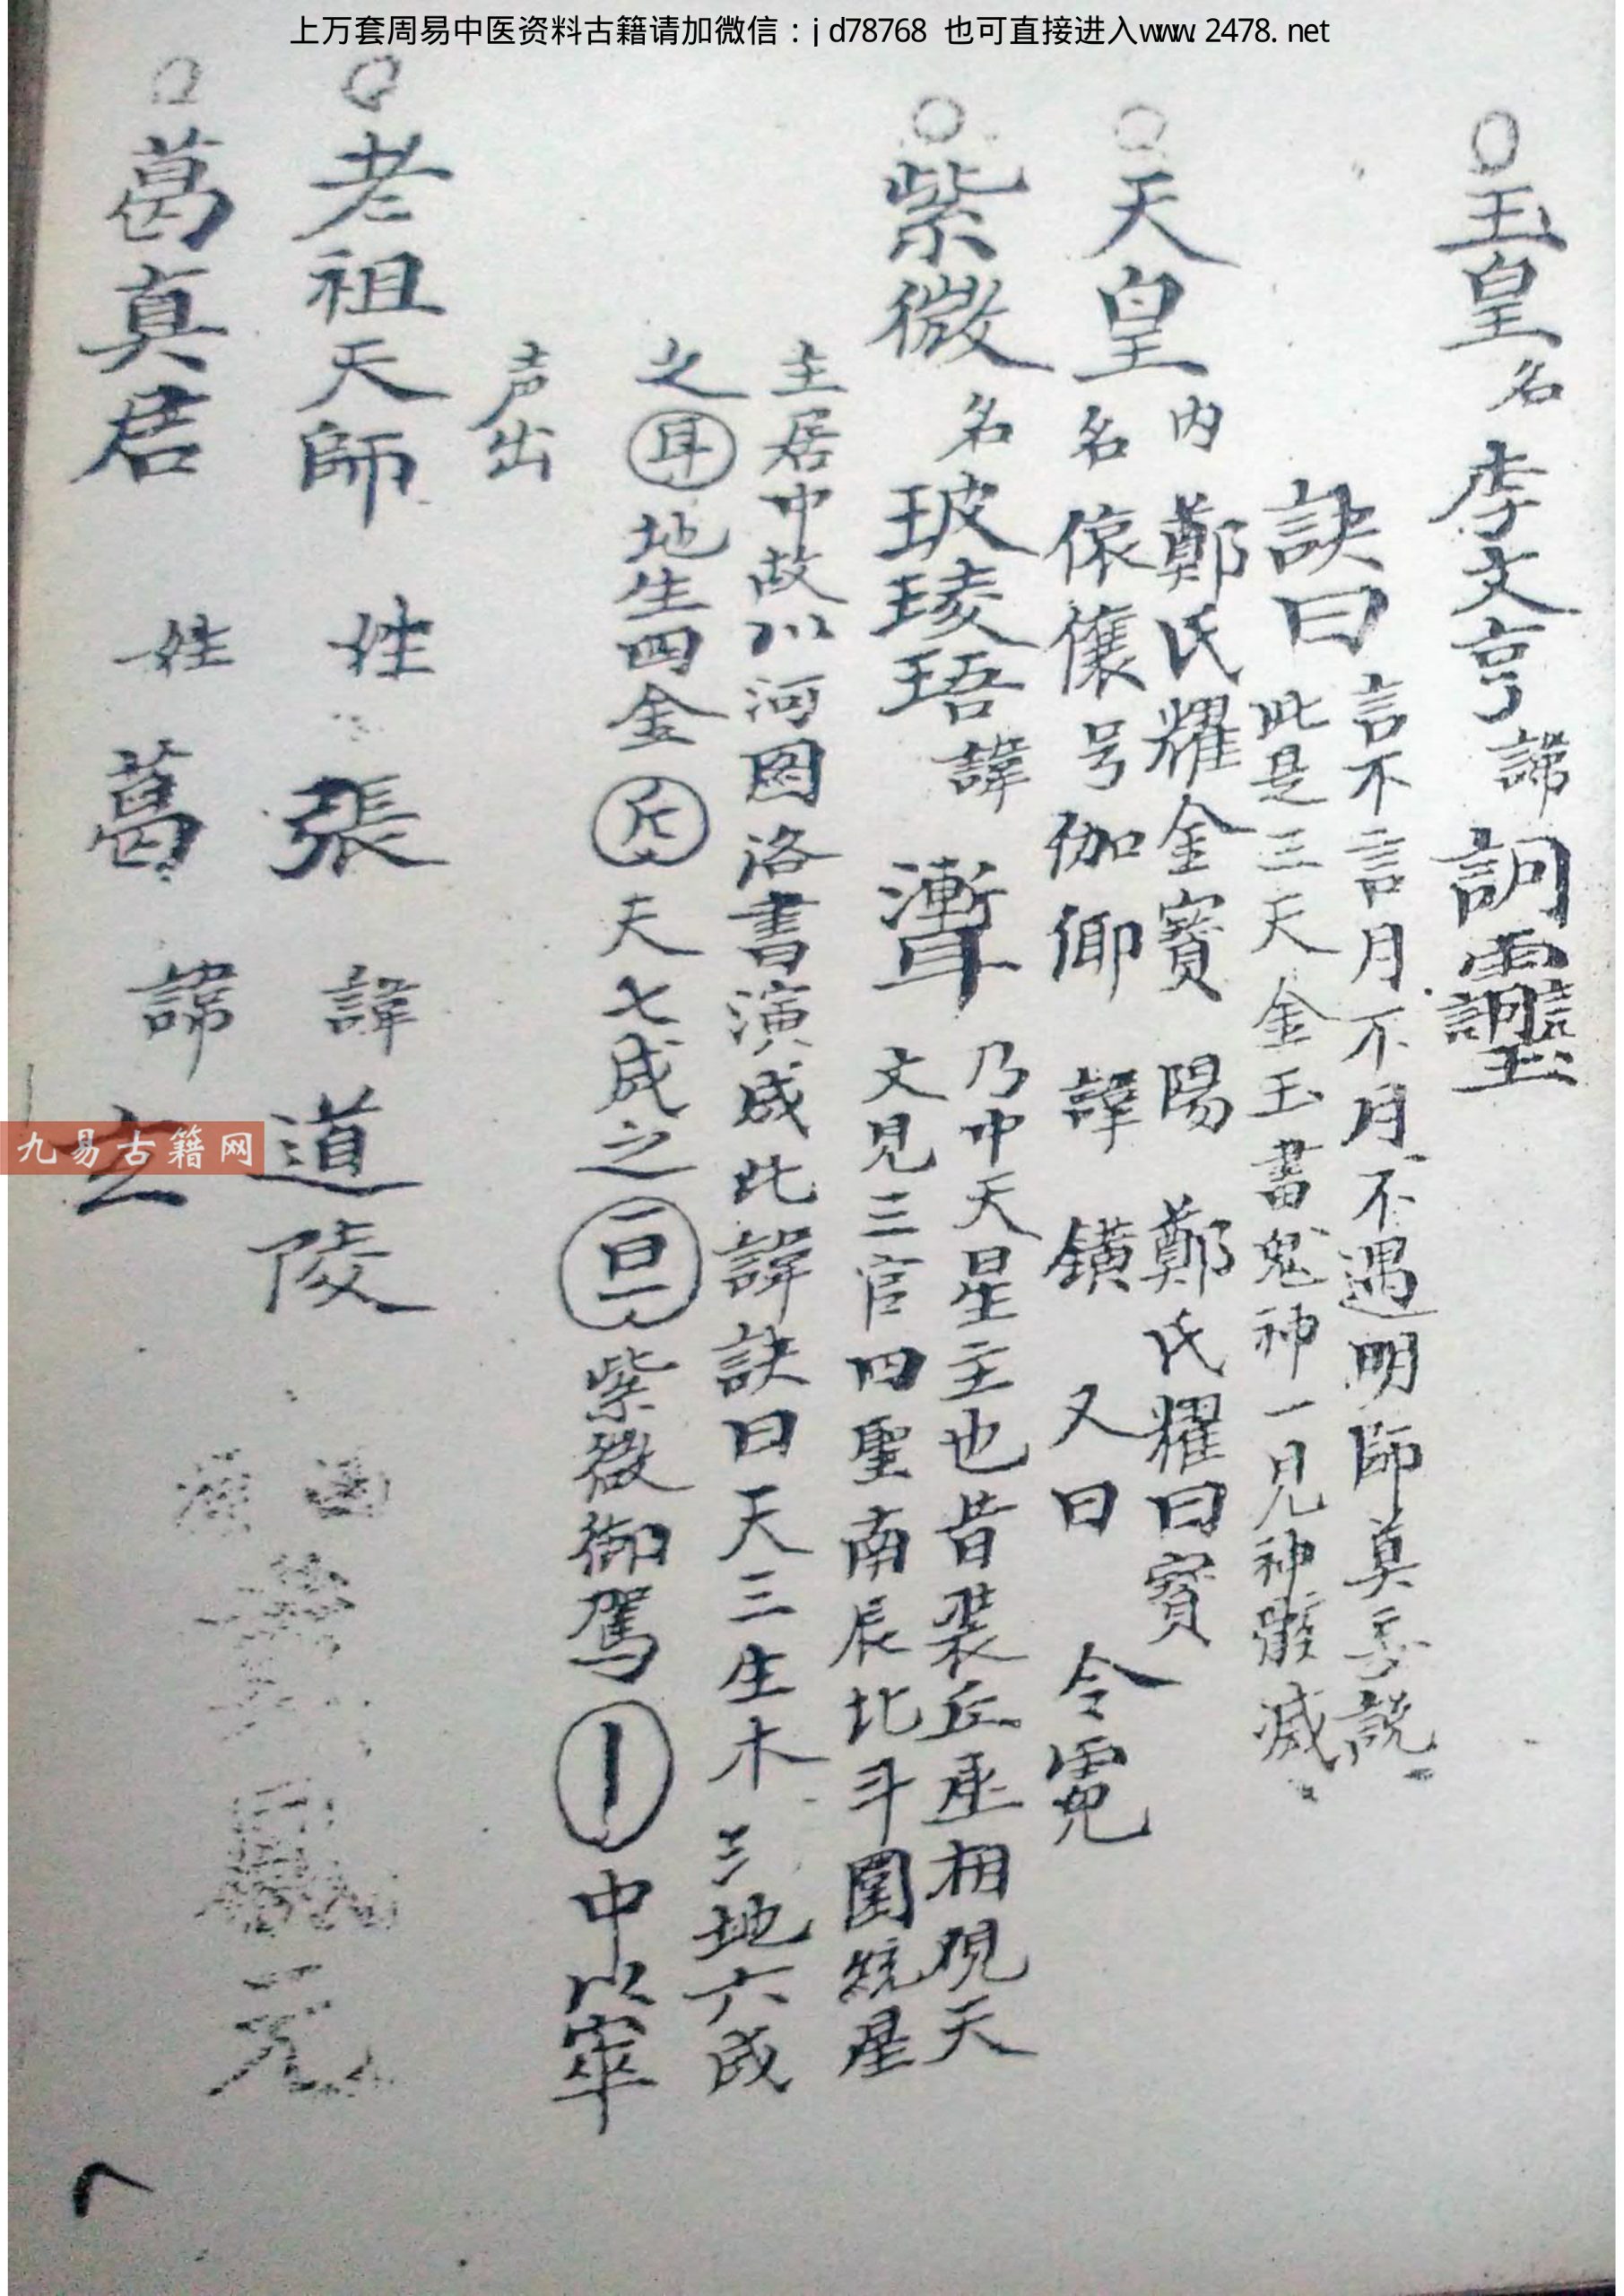 上万套周易中医资料古籍请加微信：jd78768 也可直接进入www.2478.net
○玉皇名 李文亨 諱 訶
言不言月不月不遇明師莫 說
訣曰 此是三天金玉書鬼神一見神 滅
○天皇 内 鄭氏耀金寶 陽 鄭氏耀曰寶
名 儴 号 伽仰 諱 鐄 又曰 令
○紫微 名 玻 珸 諱
乃中天星主也昔裴 丞相 天
文見三官四聖南辰北斗圍 星
主居中故以河图洛書演成此諱訣曰天三生木 地六成
之 耳 地生四金 斥 天七成之 紫微御駕 中以
声出
○老祖天師 姓 張 諱 道陵
○葛真君 姓 葛 諱 玄
元
九易古籍网